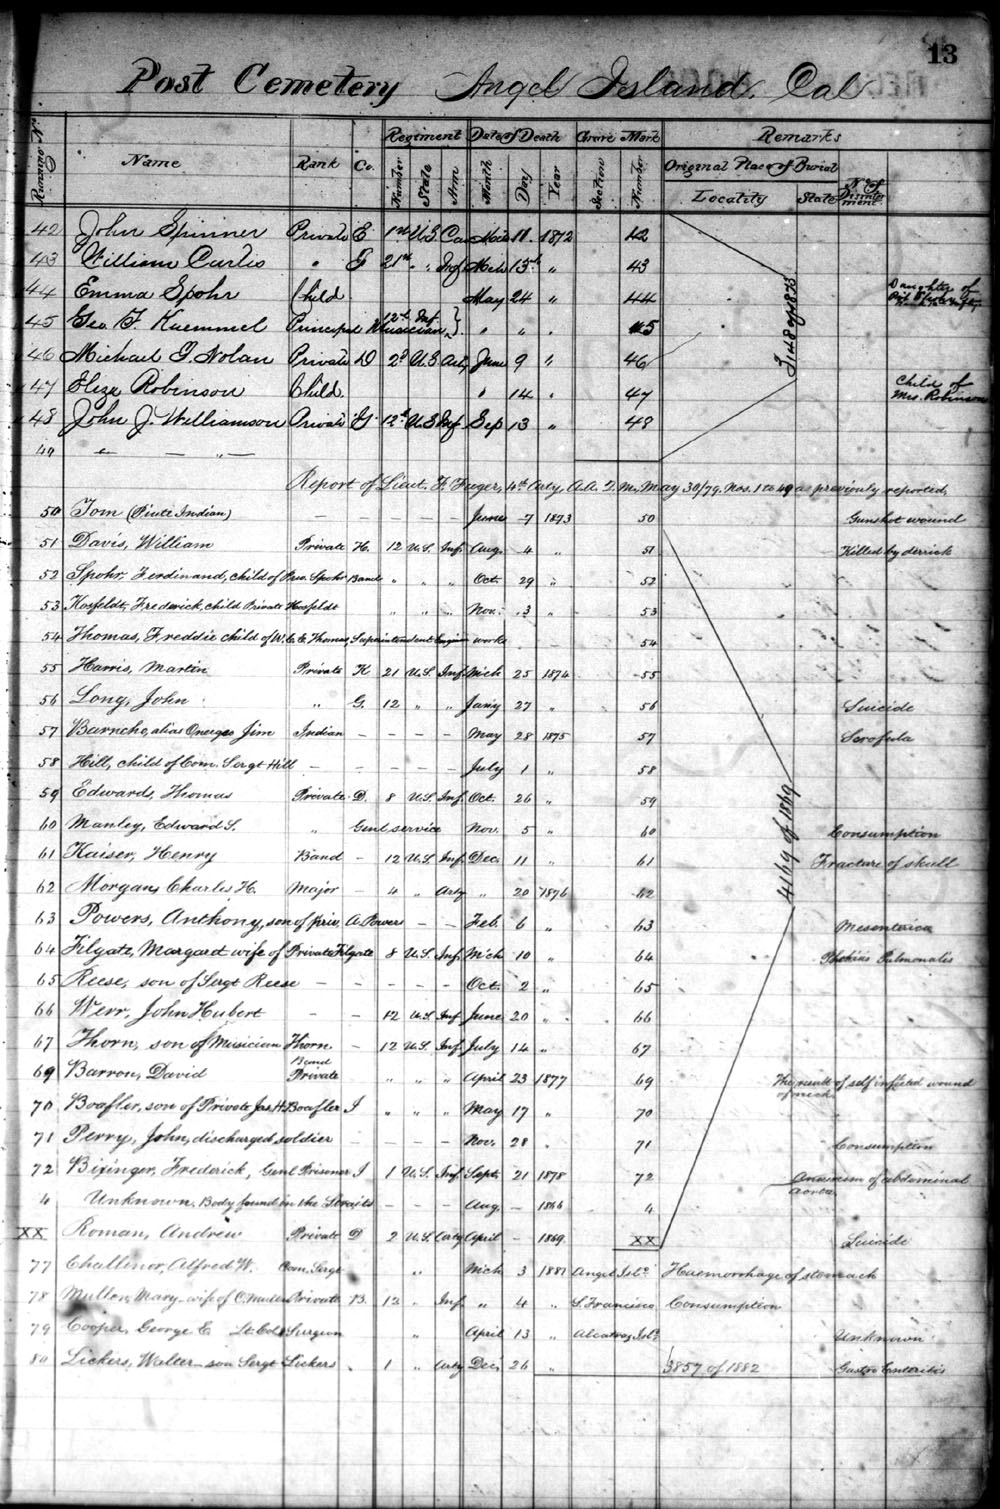 13
Post Cemetery Angel Island, Cal
Regiment Date of Death Grave Mark Remarks
Running No. Name Rank Co. Number State Arm Month Day Year Section Number Original Place of Burial No. of Disinterment
Locality State
42 John Spinner Private E 1st U.S Cav Mch 11 1872 42
43 William Curtis " G 21st " " Inf Mch 13th " 43
44 Emma Spohr Child May 24 " 44 Daughter of
45 Geo. F. Kaemmel Principal Musician 12th Inf. } " " " 45
46 Michael G. Nolan Private D 2d U.S Arty June 9 " 46
47 Eliza Robinson Child " 14 " 47 Child of Mrs. Robinson
48 John J. Williamson Private G 12th U.S Inf. Sep 13 " 48
49 — — " —
Report of Lieut. F. Fuger, 4th Arty, A.A.Q.M., May 30/79, Nos. 1 to 49 as previously reported.
50 Tom (Piute Indian) — — — — — June 7 1873 50 Gunshot wound
51 Davis, William Private H. 12 U.S. Inf. Aug. 4 " 51 Killed by derrick
52 Spohr, Ferdinand, child of Priv. Spohr Band " " " Oct. 29 " 52
53 Hosfeldt, Frederick, child Private Hosfeldt " " " Nov. 3 " 53
54 Thomas, Freddie child of W. C. E. Thomas, Superintendent Engineer works 54
55 Harris, Martin Private K 21 U.S. Inf. Mch 25 1874 55
56 Long, John " G. 12 " " Jany 27 " 56 Suicide
57 Barncho, alias Jim Indian — — — — May 28 1875 57 Scrofula
58 Hill, child of Com. Sergt Hill — — — — — July 1 " 58
59 Edwards, Thomas Private D. 8 U.S. Inf. Oct. 26 " 59
60 Manley, Edward S. " Genl service Nov. 5 " 60 Consumption
61 Kaiser, Henry Band — 12 U.S. Inf. Dec. 11 " 61 Fracture of skull
62 Morgan, Charles H. Major — 4 " Arty " 20 1876 62
63 Powers, Anthony, son of priv. A. Powers — — Feb. 6 " 63 Mesenterica
64 Filgate, Margaret wife of Private Filgate 8 U.S. Inf. Mch 10 " 64 Phthisis Pulmonalis
65 Reese, son of Sergt Reese — — — — — Oct. 2 " 65
66 Werr, John Hubert — — 12 U.S. Inf. June 20 " 66
67 Thorn, son of Musician Thorn — 12 U.S. Inf. July 14 " 67
69 Barron, David Band Private " " " April 23 1877 69 The result of self inflicted wound of neck
70 Boafler, son of Private Jas. H. Boafler I " " " May 17 " 70
71 Perry, John, discharged soldier — — — Nov. 28 " 71 Consumption
72 Bizinger, Frederick, Genl Prisoner I 1 U.S. Inf. Sept. 21 1878 72 Aneurism of abdominal aorta
4 Unknown, Body found in the Straits — — — Aug. — 1866 4
XX Roman, Andrew Private D 2 U.S. Arty April — 1869 XX Suicide
77 Challinor, Alfred W. Com. Sergt " Mch 3 1881 Angel Isld. Haemorrhage of stomach
78 Muller, Mary — wife of C. Muller Private B. 12 " Inf. " 4 " S Francisco Consumption
79 Cooper, George E Lt. Col & Surgeon " April 13 " Alcatraz Isld. Unknown
80 Lickers, Walter — son Sergt Lickers 1 " Arty Dec. 26 " 3857 of 1882 Gastro Enteritis
4169 of 1869